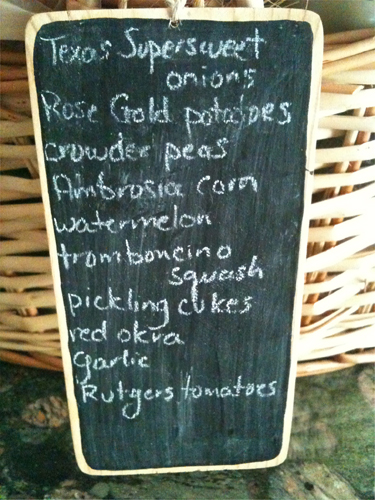 Texas Supersweet
onions
Rose Gold potatoes
crowder peas
Ambrosia corn
watermelon
tromboncino
squash
pickling cukes
red okra
garlic
Rutgers tomatoes